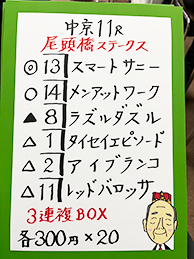 中京11R
尾頭橋ステークス
◎13 スマートサニー
○14 メンアットワーク
▲8 ラズルダズル
△1 タイセイエピソード
△2 アイブランコ
△11 レッドバロッサ
3連複BOX
各300円×20